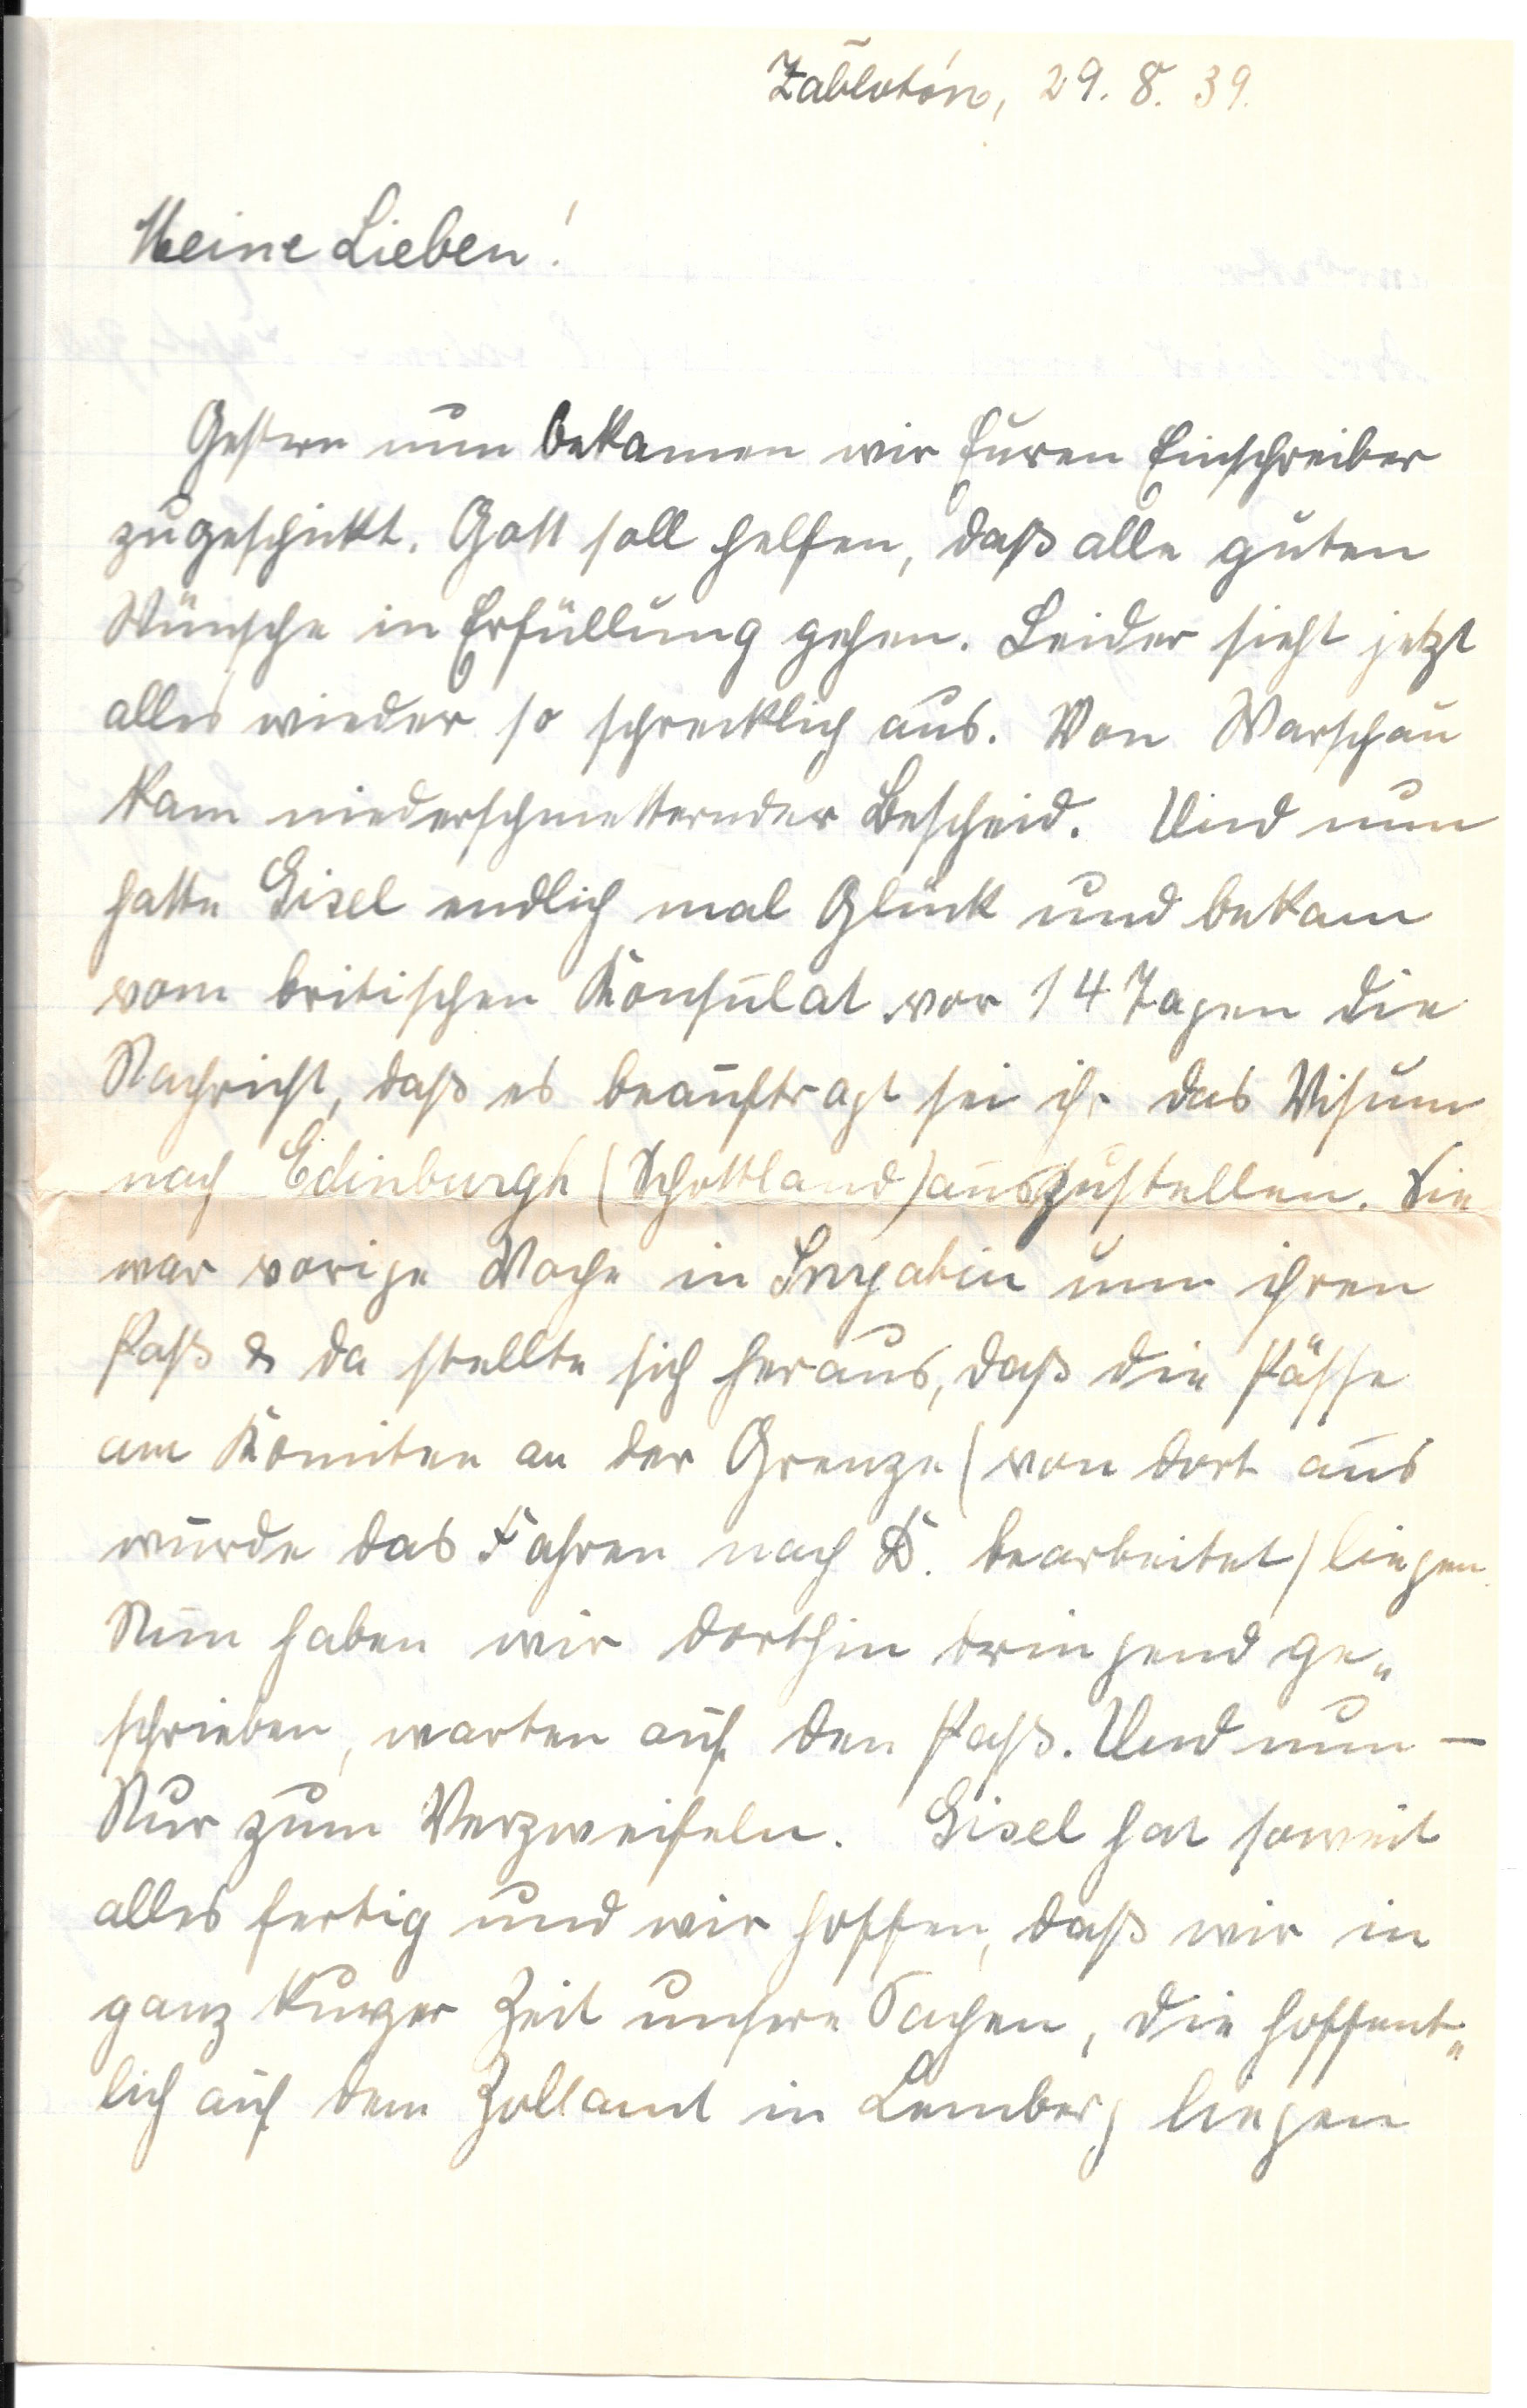 Zabłotów, 29. 8. 39.
Meine Lieben!
Gestern nun bekamen wir Euren Einschreiber
zugeschickt. Gott soll helfen, daß alle guten
Wünsche in Erfüllung gehen. Leider sieht jetzt
alles wieder so schrecklich aus. Von Warschau
kam niederschmetternder Bescheid. Und nun
hatte Gisel endlich mal Glück und bekam
vom britischen Konsulat vor 14 Tagen die
Nachricht, daß es beauftragt sei ihr das Visum
nach Edinburgh (Schottland) auszustellen. Sie
war vorige Woche in Sniatin um ihren
Paß & da stellte sich heraus, daß die Pässe
am Komitee an der Grenze (von dort aus
wurde das Fahren nach D. bearbeitet) liegen.
Nun haben wir dorthin dringend ge„
schrieben, warten auf den Paß. Und nun –
Nur zum Verzweifeln. Gisel hat soweit
alles fertig und wir hoffen, daß wir in
ganz kurzer Zeit unsere Sachen, die hoffent„
lich auf dem Zollamt in Lemberg liegen